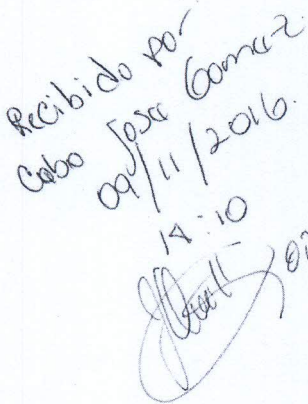 Recibido por
Cabo José Gomez
09/11/2016.
14:10